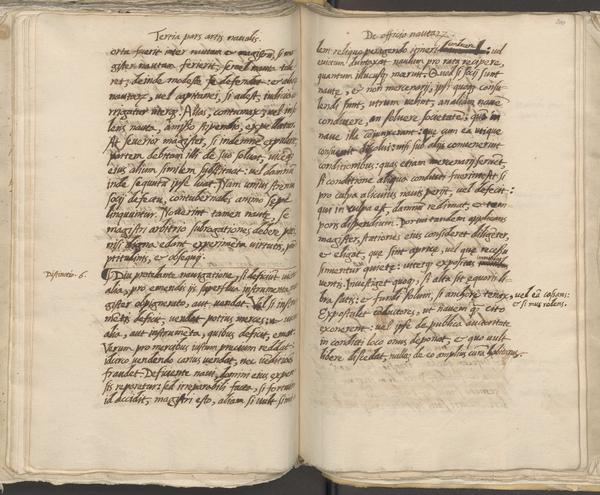 Tertia pars artis naualis.
orta fuerit inter nautam et magistrum, si ma
gister nautam ferierit, semel nauta tole
ret; deinde modeste se defendat: et
nautarum, vel capitanei, si adest, iudicio
rrigatur uterque. Alias, contumax, vel inso
lens nauta, amisso stipendio, expellatur.
At seuerior magister, si indemnem expulerit,
partem debitam illi de suo soluat, nec
eius alium simile in substituat: vel damna
inde sequuta ipse luat. Nam unius strenui
socij defectu, contubernales animo sepe
linquuntur. Nouerint tamen nautae, se
magistri arbitrio subrogationes debere pati
nisi edant experimenta virtutis,
ptitudinis, et obsequij.
Distinctio. 6.
Diu protelante nauigatione, si deficiunt
alia, pro emendis ijs superflua instrumenta ma
gister oppignerato, aut vendat. Vel si instru
menta deficiunt, vendat potius merces; ut
alia, aut instrumenta, quibus deficit, emat.
Verum pro mercibus iustum precium reddat:
idcirco vendendo carius vendat, nec venditione
fraudet. Desinente naui domini eius expen
sis reparatur; sed irreparabili facta, si fortuito
id accidit; magistri esto, aliam si uult simi
De officio nautarum
lem reliquo peragendo itineri conducere: uel
euictum duntaxat naulum pro rata recipere,
quantum illucusque meruit. Quod si socij sunt
nautae, et non mercenarij, ipsi quoque consu
lendi sunt, utrum velint, an aliam nauem
conducere, an soluere societatem, que in
naue illa conuenerant: que cum ea utique
consueuit dissolui: nisi sub alijs conuenerint
conditionibus: quas etiam mercenarij seruent,
si conditione aliqua conducti fuerint. At si
pro culpa alicuius nauis perijt, vel defecit:
qui in culpa est, damna redimat, et tem
poris dispendium. Portui tandem applicans
magister, stationes eius consideret diligenter,
et eligat, que sint apricae, vel que recessu
sinuentur quiete: interque expositas
ventis. Inuestiget quoque, si alta sit equoris li
bra satis: et fundi solum, si anchorae tenax, vel eam cassans:
et si mus rodens.
Expostulet conductores, ut nauem quam cito
exonerent: vel ipse de publica auctoritate
in conducti loco onus deponat, et quo uult
libere discedat, nullas de eo amplius curas habiturus.